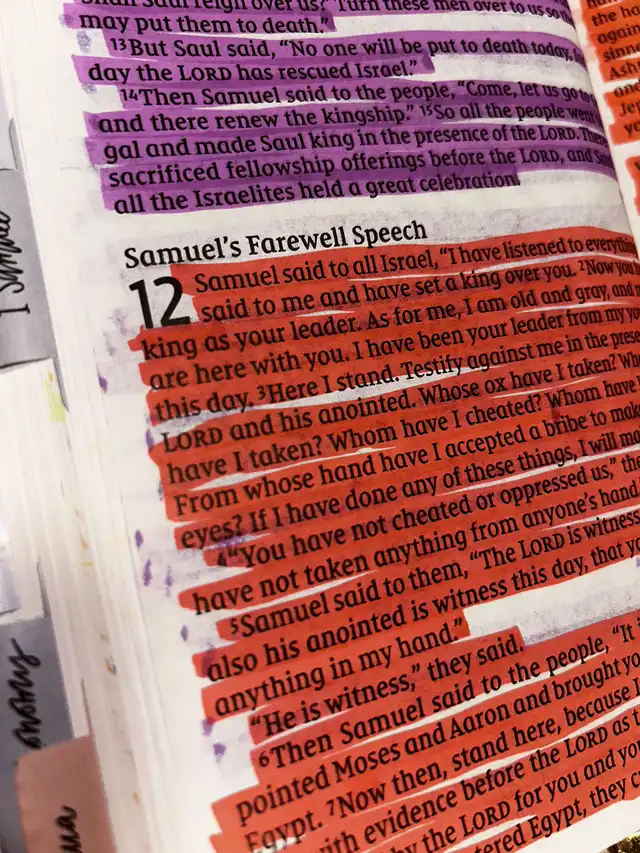 shall Saul reign over us?' Turn these men over to us so
may put them to death."
13But Saul said, "No one will be put to death today,
day the LORD has rescued Israel."
14Then Samuel said to the people, "Come, let us go to
and there renew the kingship." 15So all the people went
gal and made Saul king in the presence of the LORD. There
sacrificed fellowship offerings before the LORD, and
all the Israelites held a great celebration.
Samuel's Farewell Speech
12 Samuel said to all Israel, "I have listened to everything
said to me and have set a king over you. 2Now you
king as your leader. As for me, I am old and gray, and
are here with you. I have been your leader from my
this day. 3Here I stand. Testify against me in the
LORD and his anointed. Whose ox have I taken?
have I taken? Whom have I cheated? Whom have
From whose hand have I accepted a bribe to
eyes? If I have done any of these things, I will
4"You have not cheated or oppressed us,"
have not taken anything from anyone's hand.
5Samuel said to them, "The LORD is witness
also his anointed is witness this day, that
anything in my hand."
"He is witness," they said.
6Then Samuel said to the people, "It
pointed Moses and Aaron and brought
Egypt. 7Now then, stand here, because I
with evidence before the LORD as
by the LORD for you and
tered Egypt, they
1 Samuel